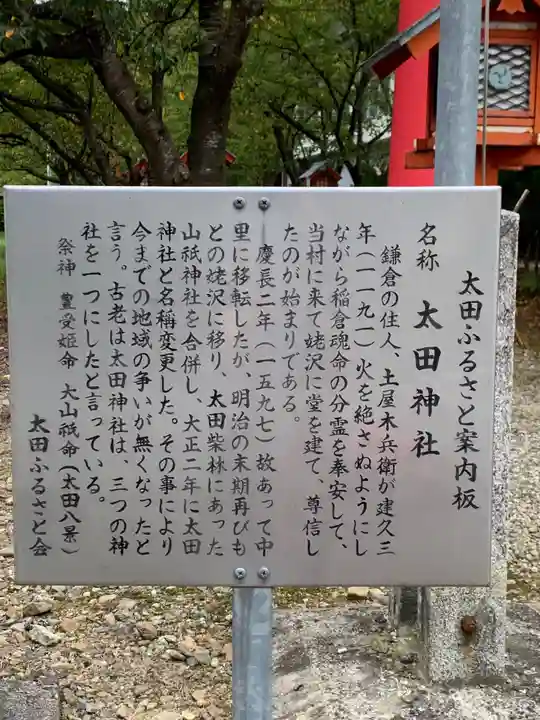 太田ふるさと案内板
名称 太田神社
鎌倉の住人、土屋木兵衛が建久三
年(一一九一)火を絶さぬようにし
ながら稲倉魂命の分霊を奉安して、
当村に来て姥沢に堂を建て、尊信し
たのが始まりである。
慶長二年(一五九七)故あって中
里に移転したが、明治の末期再びも
との姥沢に移り、太田柴林にあった
山祇神社を合併し、大正二年に太田
神社と名稱変更した。その事により
今までの地域の争いが無くなったと
言う。古老は太田神社は、三つの神
社を一つにしたと言っている。
祭神 豊受姫命 大山祇命(太田八景)
太田ふるさと会